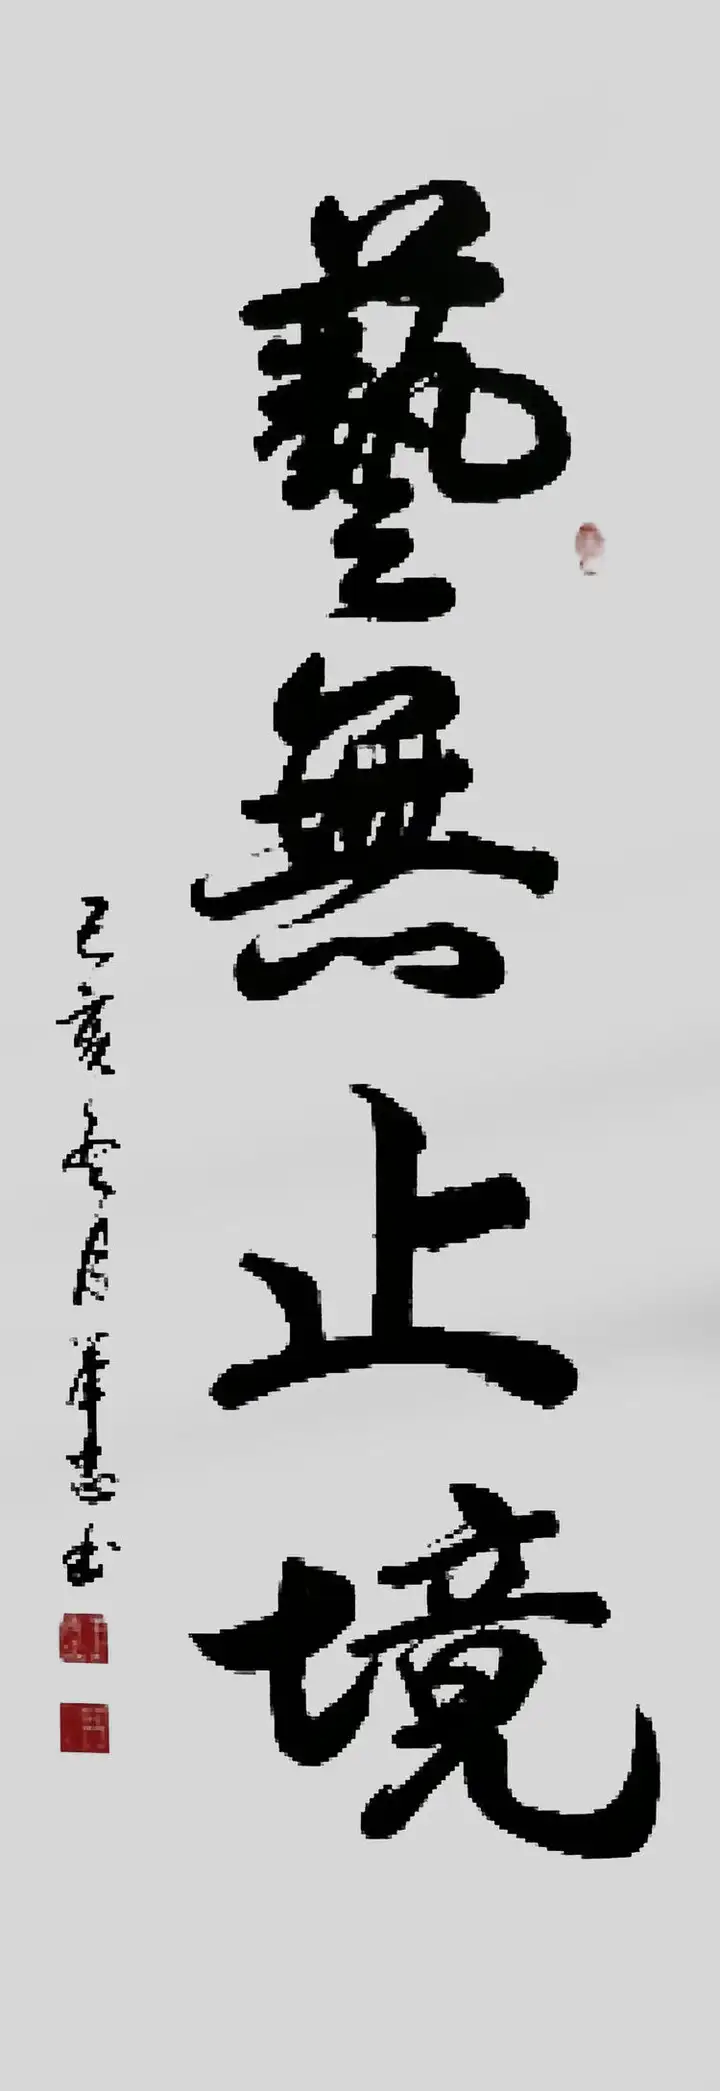 藝無止境
己亥冬月
書